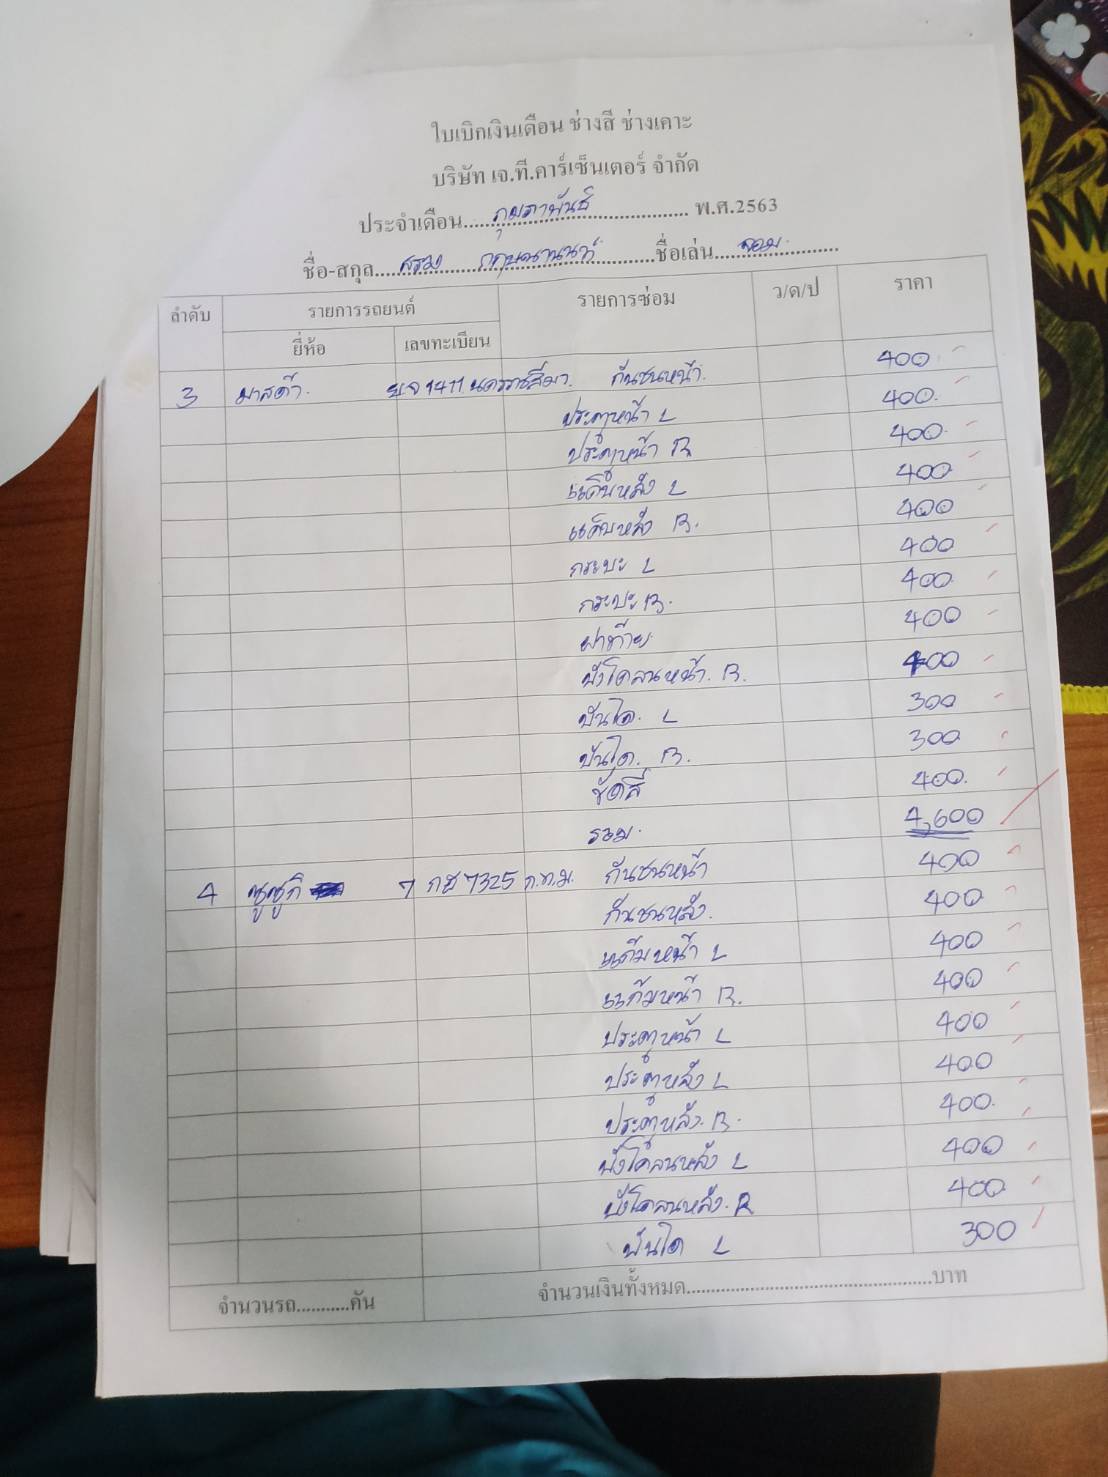 ใบเบิกเงินเดือน ช่างสี ช่างเคาะ
บริษัท เจ.ที.คาร์เซ็นเตอร์ จำกัด
ประจำเดือน....กุมภาพันธ์.... พ.ศ.2563
ชื่อ-สกุล.... ....ชื่อเล่น....จอม....
ลำดับ รายการรถยนต์ รายการซ่อม ว/ด/ป ราคา
ยี่ห้อ เลขทะเบียน
3 มาสด้า. 1411 นครราชสีมา. กันชนหน้า. 400
ประตูหน้า L 400.
ประตูหน้า R 400
แค็บหลัง L 400
แค็บหลัง R. 400
กระบะ L 400
กระบะ R. 400
ฝาท้าย 400
บังโคลนหน้า. R. 400
บันได. L 300
บันได. R. 300
ขัดสี 400.
รวม. 4,600
4 ซูซูกิ 7 กฮ 7325 ก.ท.ม. กันชนหน้า 400
กันชนหลัง. 400
แก้มหน้า L 400
แก้มหน้า R. 400
ประตูหน้า L 400
ประตูหลัง L 400
ประตูหลัง. R. 400.
บังโคลนหลัง L 400
บังโคลนหลัง. R 400
บันได L 300
จำนวนรถ...........คัน จำนวนเงินทั้งหมด....................บาท